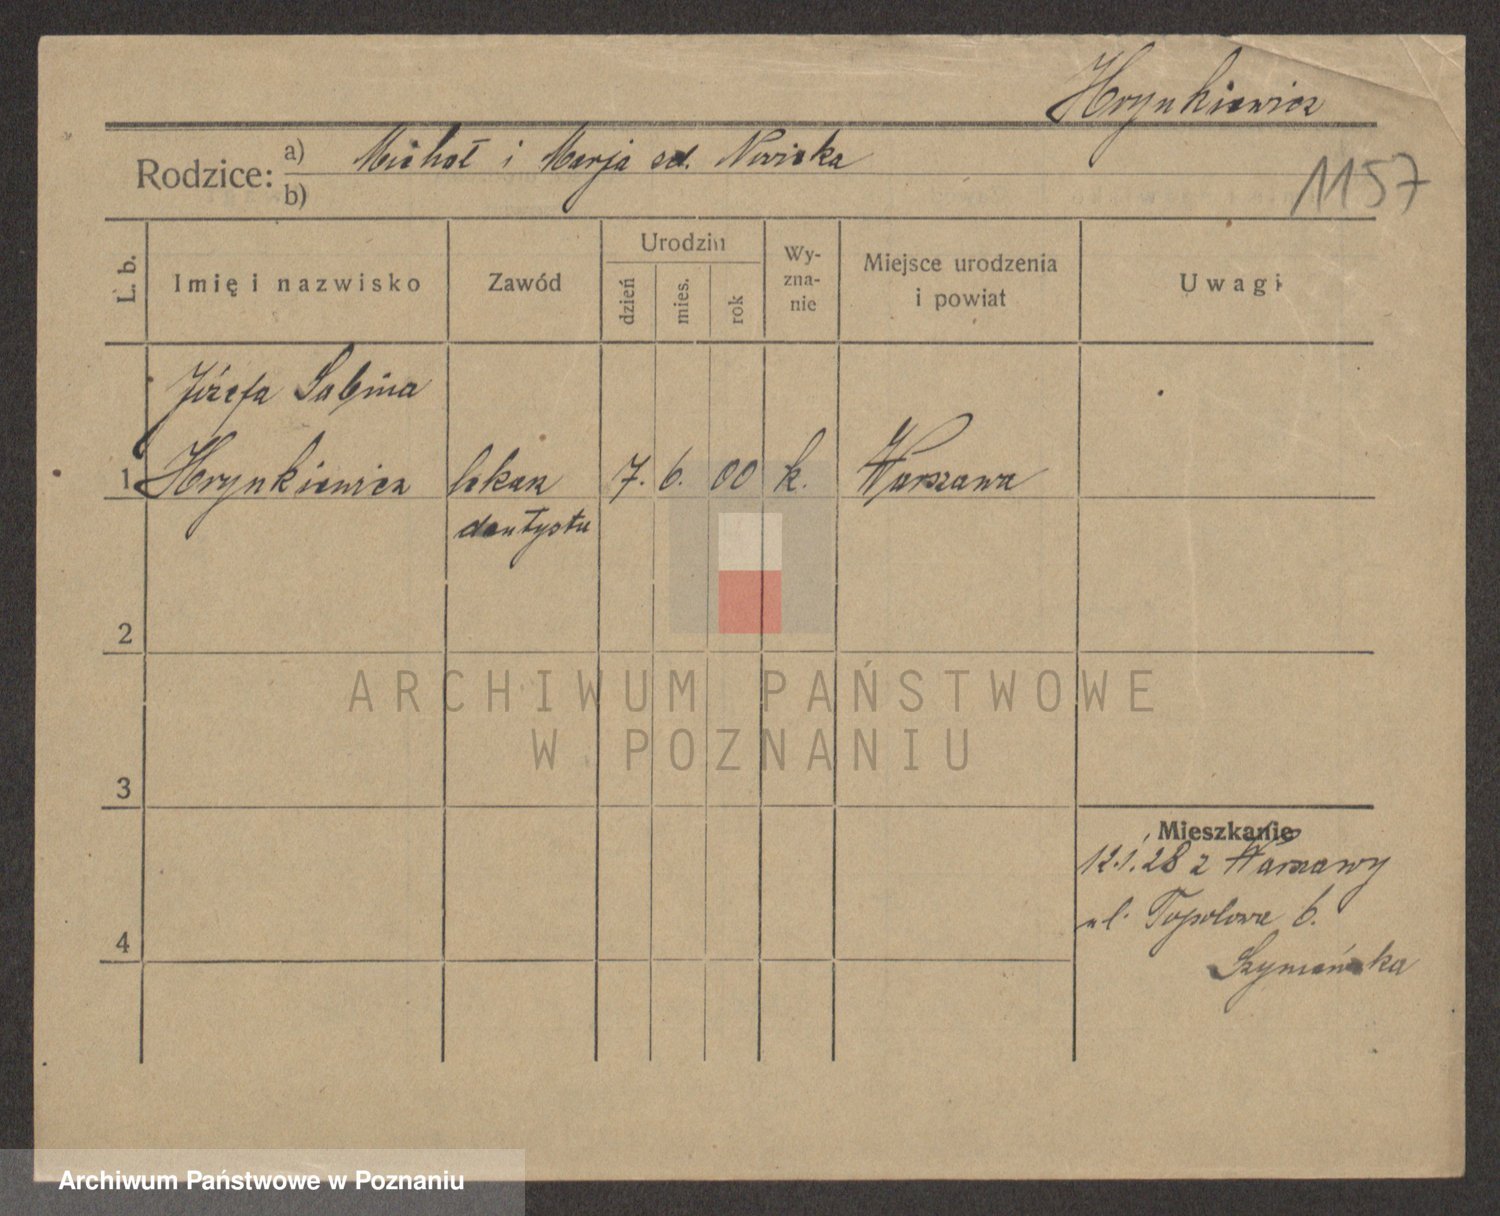 Hrynkiewicz
Rodzice: a) Michał i Marja
b)
1157
L. b.
Imię i nazwisko
Zawód
Urodzin
dzień
mies.
rok
Wy-
zna-
nie
Miejsce urodzenia
i powiat
Uwagi
Józefa Sabina
1 Hrynkiewicz lekarz 7. 6. 00 k. Warszawa
dentysta
2
3
4
Mieszkanie
12.1.28 z Warszawy
ul. Topolowa 6.
Szymańska
ARCHIWUM PAŃSTWOWE
W POZNANIU
Archiwum Państwowe w Poznaniu